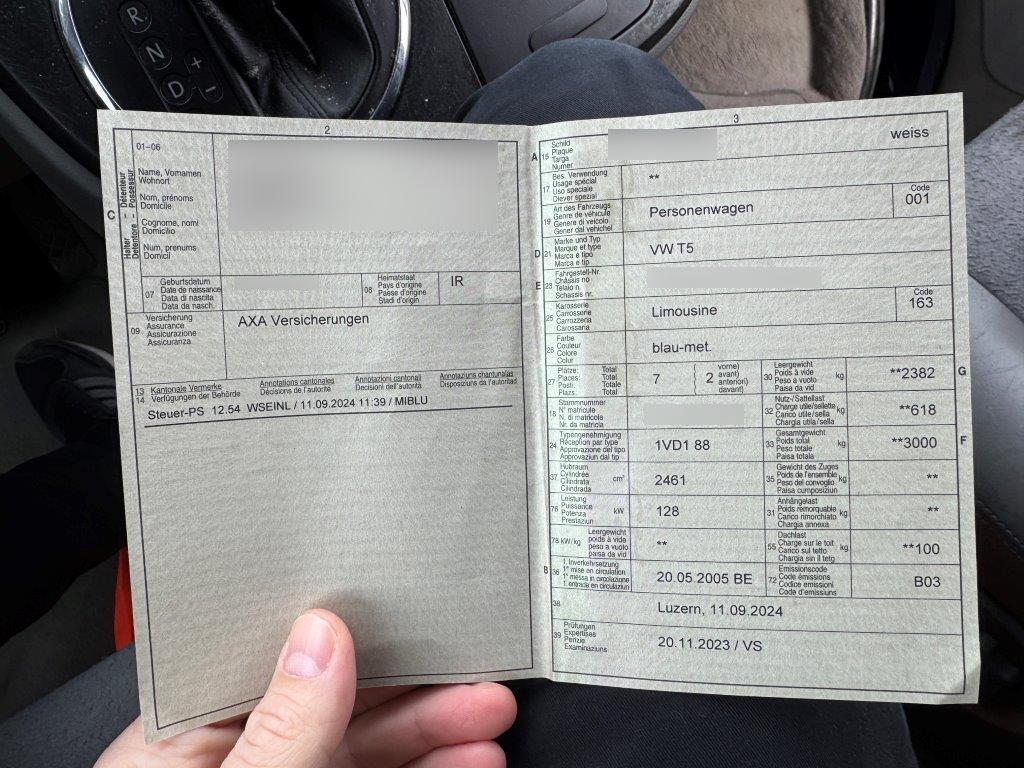 R
N
+
D
-
2
01-06
Name, Vornamen
Wohnort
Nom, prénoms
Domicile
Cognome, nomi
Domicilio
Num, prenums
Domicil
C
Halter – Détenteur
Detentore – Possessur
07
Geburtsdatum
Date de naissance
Data di nascita
Data da nasch.
08
Heimatstaat
Pays d'origine
Paese d'origine
Stadi d'origin
IR
09
Versicherung
Assurance
Assicurazione
Assicuranza
AXA Versicherungen
13
14
Kantonale Vermerke
Verfügungen der Behörde
Annotations cantonales
Décisions de l'autorité
Annotazioni cantonali
Decisioni dell'autorità
Annotaziuns chantunalas
Disposiziuns da l'autoritad
Steuer-PS 12.54 WSEINL / 11.09.2024 11:39 / MIBLU
3
A
15
Schild
Plaque
Targa
Numer
weiss
17
Bes. Verwendung
Usage spécial
Uso speciale
Diever spezial
**
19
Art des Fahrzeugs
Genre de véhicule
Genere di veicolo
Gener dal vehichel
Personenwagen
Code
001
D
21
Marke und Typ
Marque et type
Marca e tipo
Marca e tip
VW T5
E
23
Fahrgestell-Nr.
Châssis no
Telaio n.
Schassis nr.
25
Karosserie
Carrosserie
Carrozzeria
Carossaria
Limousine
Code
163
26
Farbe
Couleur
Colore
Colur
blau-met.
27
Plätze: Total
Places: Total
Posti: Totale
Plazs: Total
7
2
vorne)
avant)
anteriori)
davant)
30
Leergewicht
Poids à vide
Peso a vuoto
Paisa da vid
kg
**2382
G
18
Stammnummer
N° matricule
N. di matricola
Nr. da matricla
32
Nutz-/Sattellast
Charge utile/sellette
Carico utile/sella
Chargia utila/sella
kg
**618
24
Typengenehmigung
Réception par type
Approvazione del tipo
Approvaziun dal tip
1VD1 88
33
Gesamtgewicht
Poids total
Peso totale
Paisa totala
kg
**3000
F
37
Hubraum
Cylindrée
Cilindrata
Cilindrada
cm³
2461
35
Gewicht des Zuges
Poids de l'ensemble
Peso del convoglio
Paisa cumposiziun
kg
**
76
Leistung
Puissance
Potenza
Prestaziun
kW
128
31
Anhängelast
Poids remorquable
Carico rimorchiato
Chargia annexa
kg
**
78 kW/kg
Leergewicht
poids à vide
peso a vuoto
paisa da vid
**
55
Dachlast
Charge sur le toit
Carico sul tetto
Chargia sin il tetg
kg
**100
B
36
1. Inverkehrsetzung
1re mise en circulation
1a messa in circolazione
1. entrada en circulaziun
20.05.2005 BE
72
Emissionscode
Code émissions
Codice emissioni
Code d'emissiuns
B03
38
Luzern, 11.09.2024
39
Prüfungen
Expertises
Perizie
Examinaziuns
20.11.2023 / VS